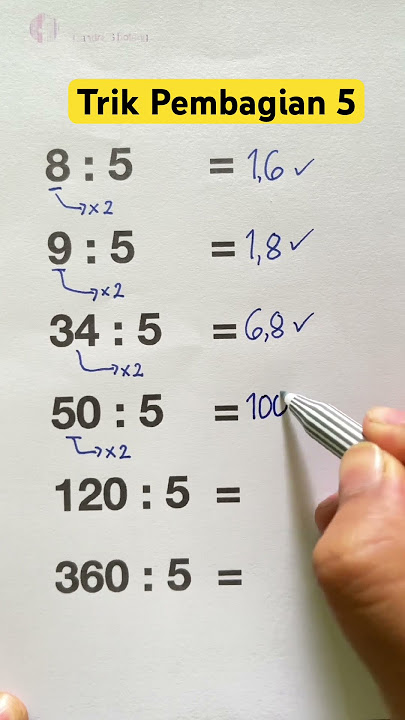 Trik Pembagian 5
8 : 5 = 1,6 ✓
×2
9 : 5 = 1,8 ✓
×2
34 : 5 = 6,8 ✓
×2
50 : 5 = 100
×2
120 : 5 =
360 : 5 =